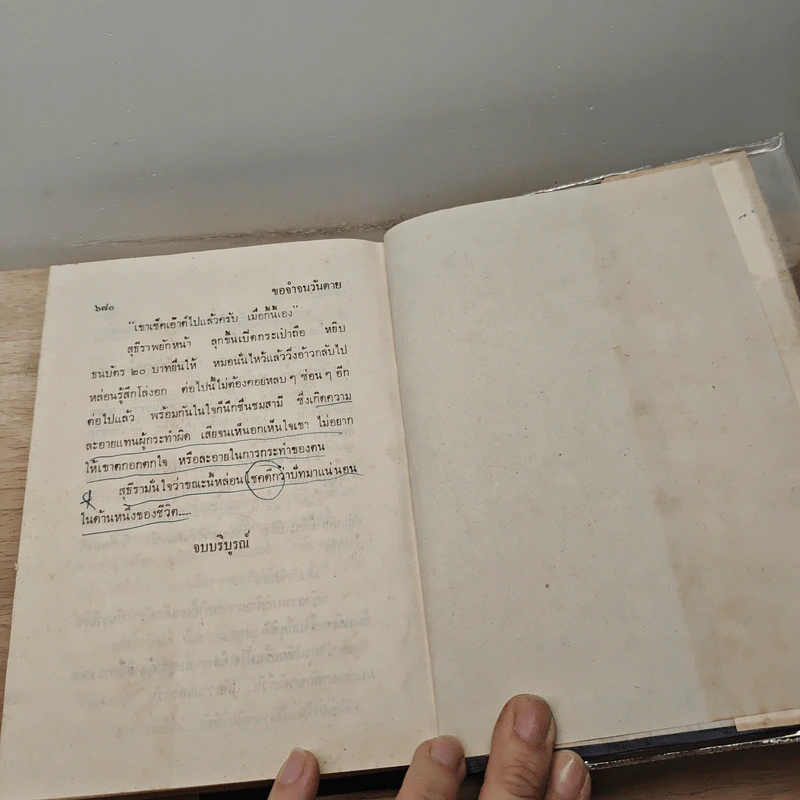 ๖๘๑
ขอจำจนวันตาย
"เขาเช็คเอ๊าต์ไปแล้วครับ เมื่อกี้นี้เอง"
สุธีราพยักหน้า ลุกขึ้นเปิดกระเป๋าถือ หยิบ
ธนบัตร ๒๐ บาทยื่นให้ หมอนั่นไหว้แล้ววิ่งอ้าวกลับไป
หล่อนรู้สึกโล่งอก ต่อไปนี้ไม่ต้องคอยหลบ ๆ ซ่อน ๆ อีก
ต่อไปแล้ว พร้อมกันในใจก็นึกชื่นชมสามี ซึ่งเกิดความ
ละอายแทนผู้กระทำผิด เสียจนเห็นอกเห็นใจเขา ไม่อยาก
ให้เขาตกอกตกใจ หรือละอายในการกระทำของตน
สุธีรามั่นใจว่าขณะนี้หล่อนโชคดีกว่าบัทมาแน่นอน
ในด้านหนึ่งของชีวิต....
จบบริบูรณ์